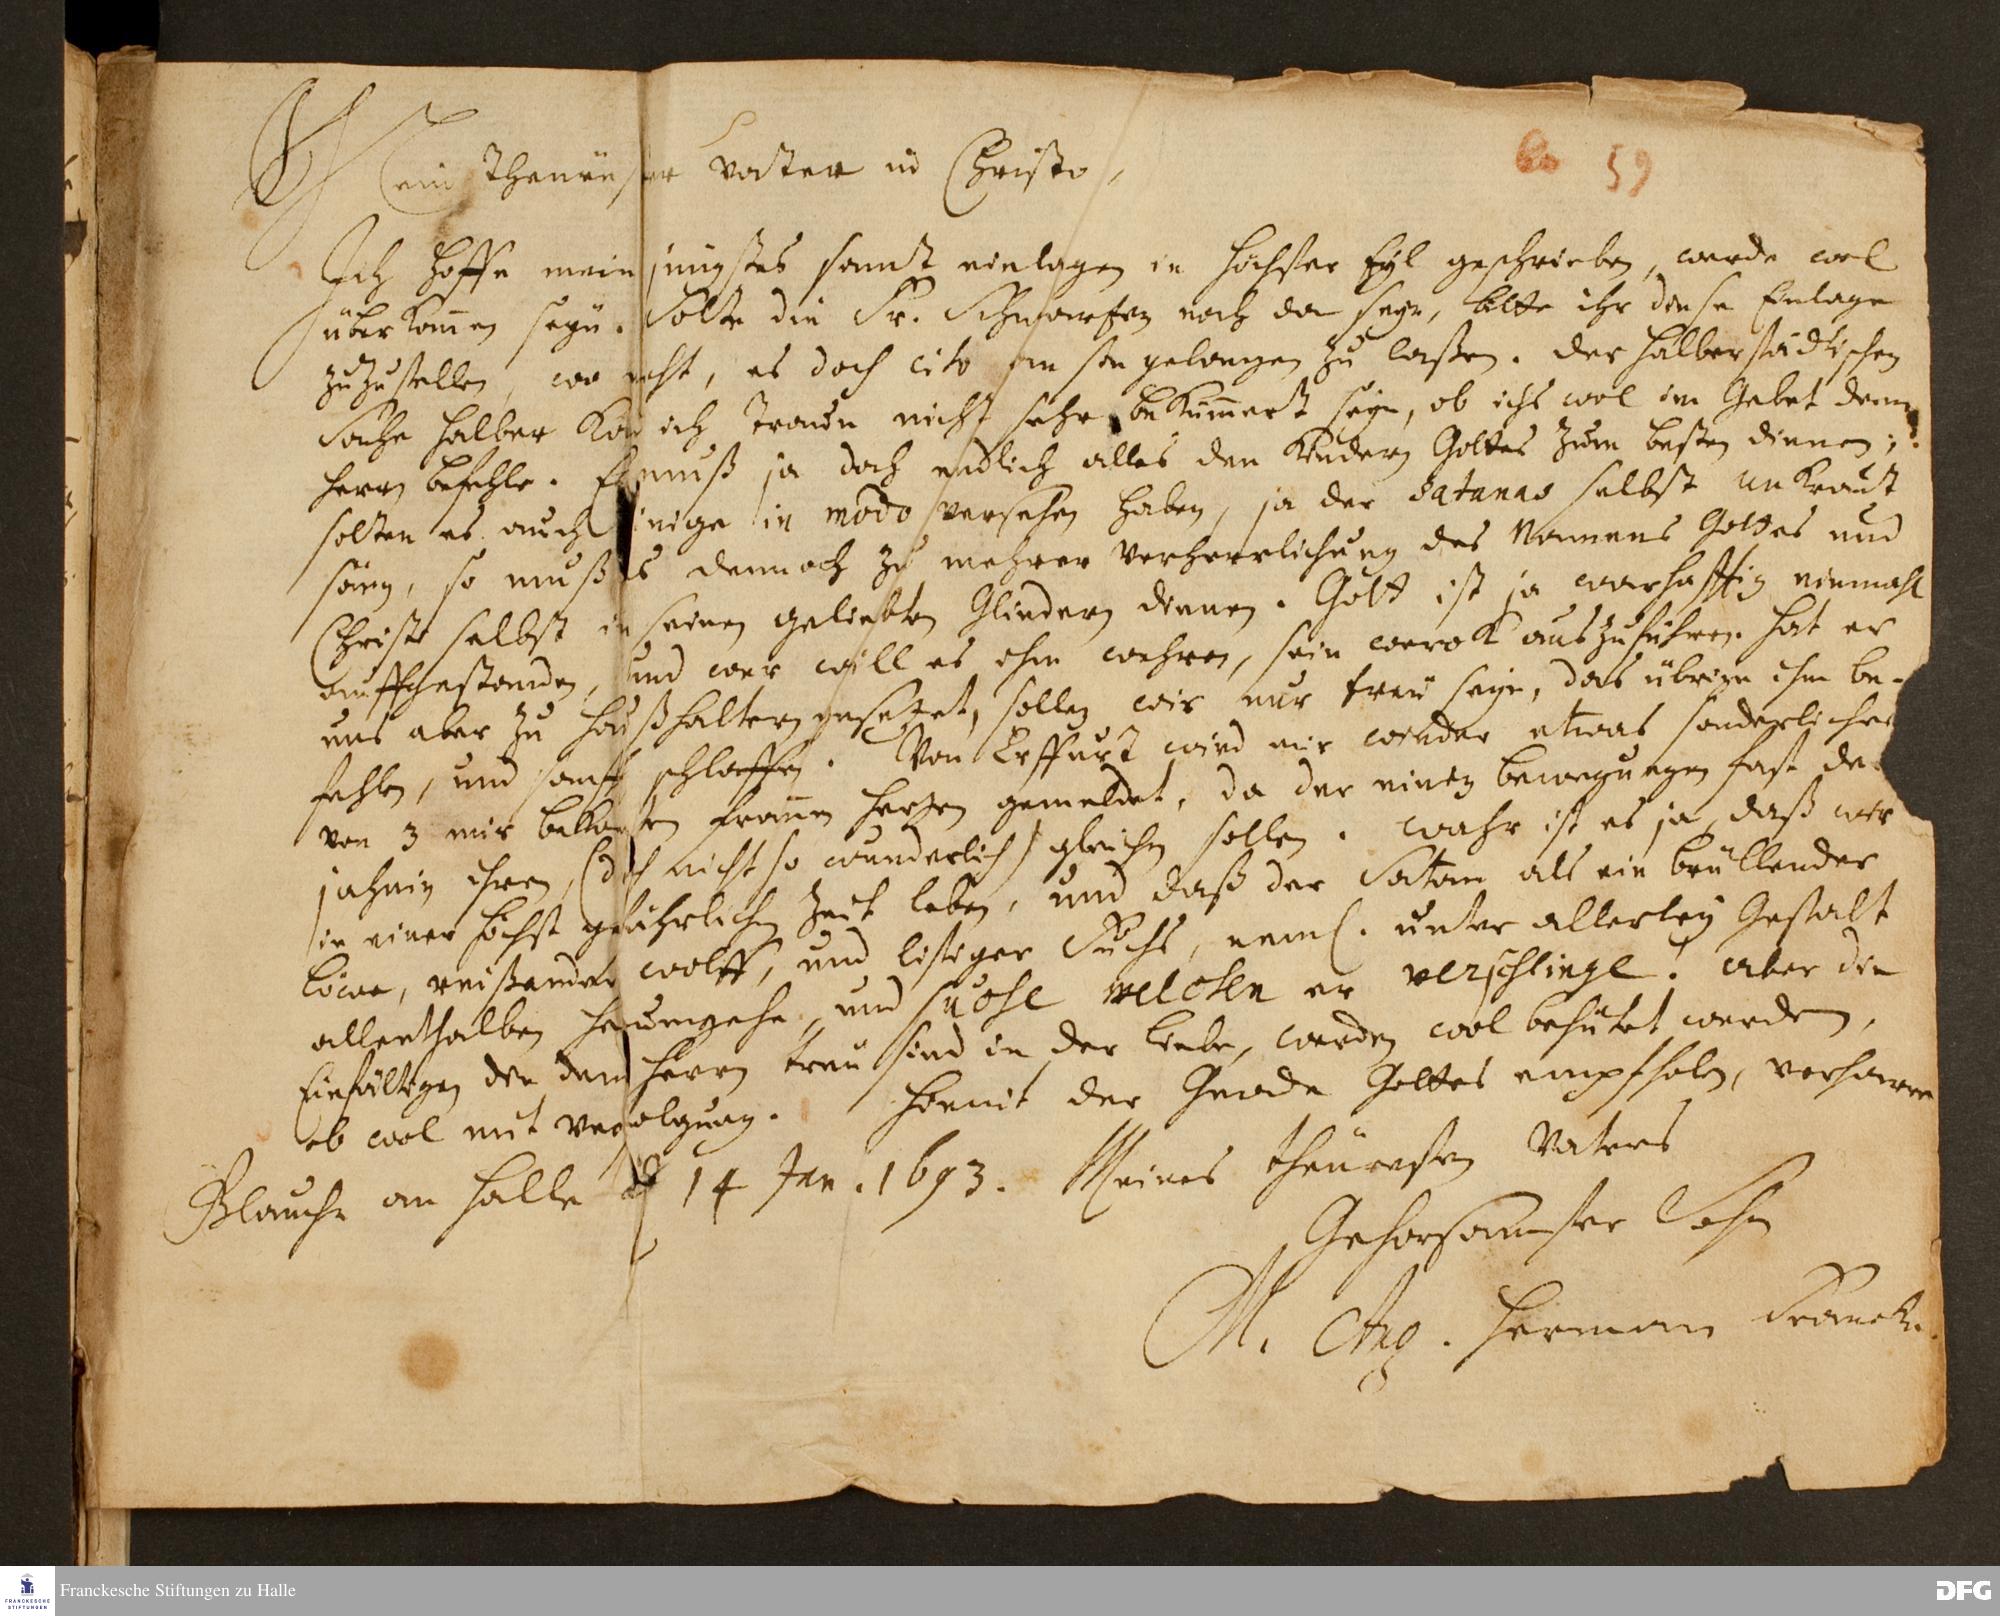 Mein Theürester Vater in Christo,
59
Ich hoffe mein jüngstes samt einlagen in höchster Eyl geschrieben, werde wol
überkom̄en seyn. Solte die Fr. Schwartzen noch da seyn, bitte ihr diese Einlage
zuzustellen, wo nicht, es doch cito an sie gelangen zu laßen. Der Halberstädtischen
Sache halber kan ich traun nicht sehr bekümmert seyn, ob ichs wol im Gebet dem
Herrn befehle. Es muß ja doch endlich alles den Kindern Gottes zum besten dienen;
solten es auch einige in modo versehen haben, ja der Satanas selbst unkraut
säen, so muß es dennoch zu mehrer verherrlichung des Namens Gottes und
Christi selbst in seinen geliebten Gliedern dienen. Gott ist ja warhafftig einmahl
auffgestanden, und wer will es ihm wehren, sein werck auszuführen. Hat er
uns aber zu Haußhaltern gesetzet, sollen wir nur treu seyn, das übrige ihm be-
fehlen, und sanfft schlaffen. Von Erffurt wird mir wieder etwas sonderliches
von 3 mir bekanten frauen Hertzen gemeldet, da der einen bewegungen fast de
jahnig ihren, (doch nicht so wunderlich) gleichen sollen. Wahr ist es ja, daß wir
in einer höchst gefährlichen Zeit leben, und daß der Satan als ein brüllender
Löwe, reißender wolff, und listiger Fuchs, neml. unter allerley Gestalt
allenthalben herumgehe, und suche welchen er verschlinge. Aber die
Einfältigen die dem Herrn treu sind in der Liebe, werden wol behütet werden,
ob wol mit verfolgung. Hiemit der Gnade Gottes empfholen, verharre
Glaucha an Halle d 14 Jan. 1693. Meines theüresten Vaters
Gehorsamster Sohn
M. Aug. Herman Francke.
Franckesche Stiftungen zu Halle
FRANCKESCHE
STIFTUNGEN
DFG